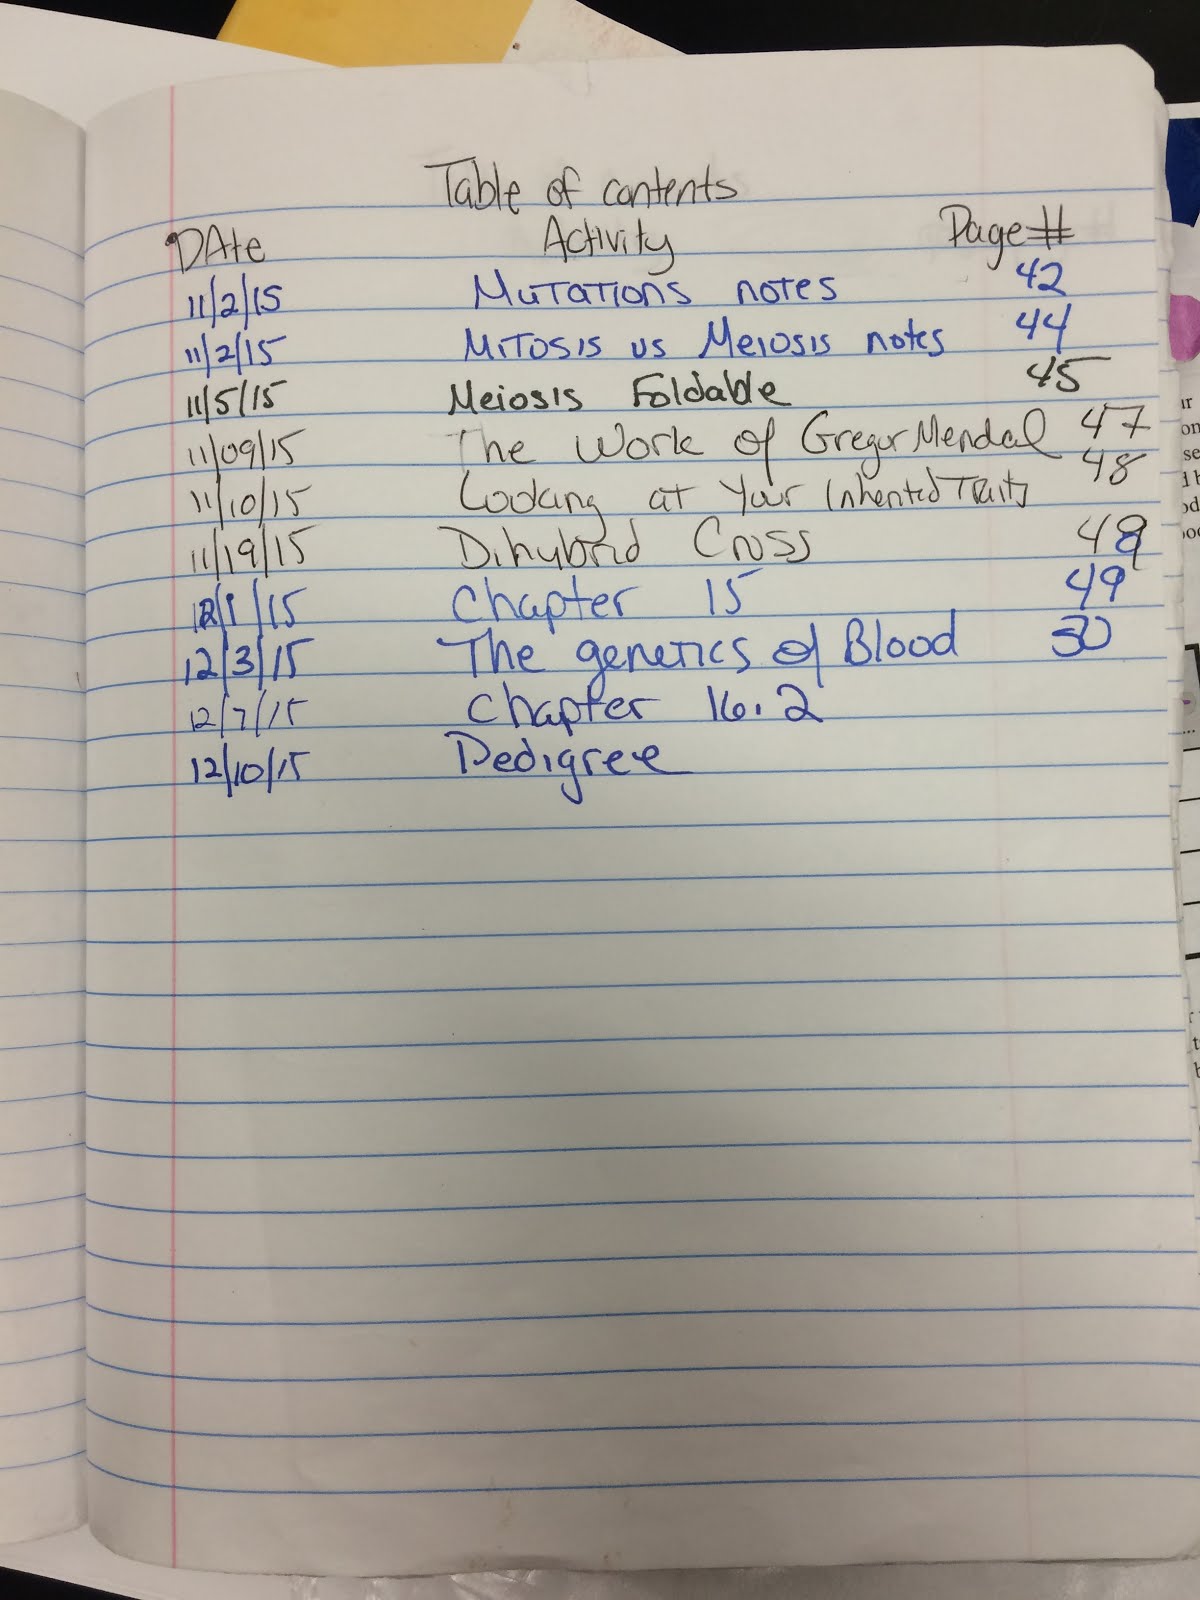 Table of contents
DAte Activity Page #
11/2/15 Mutations notes 42
11/2/15 Mitosis vs Meiosis notes 44
11/5/15 Meiosis Foldable 45
11/09/15 The Work of Gregor Mendal 47
11/10/15 Looking at Your Inherited Traits 48
11/19/15 Dihybrid Cross 48
12/1/15 Chapter 15 49
12/3/15 The genetics of Blood 50
12/7/15 Chapter 16.2
12/10/15 Pedigree